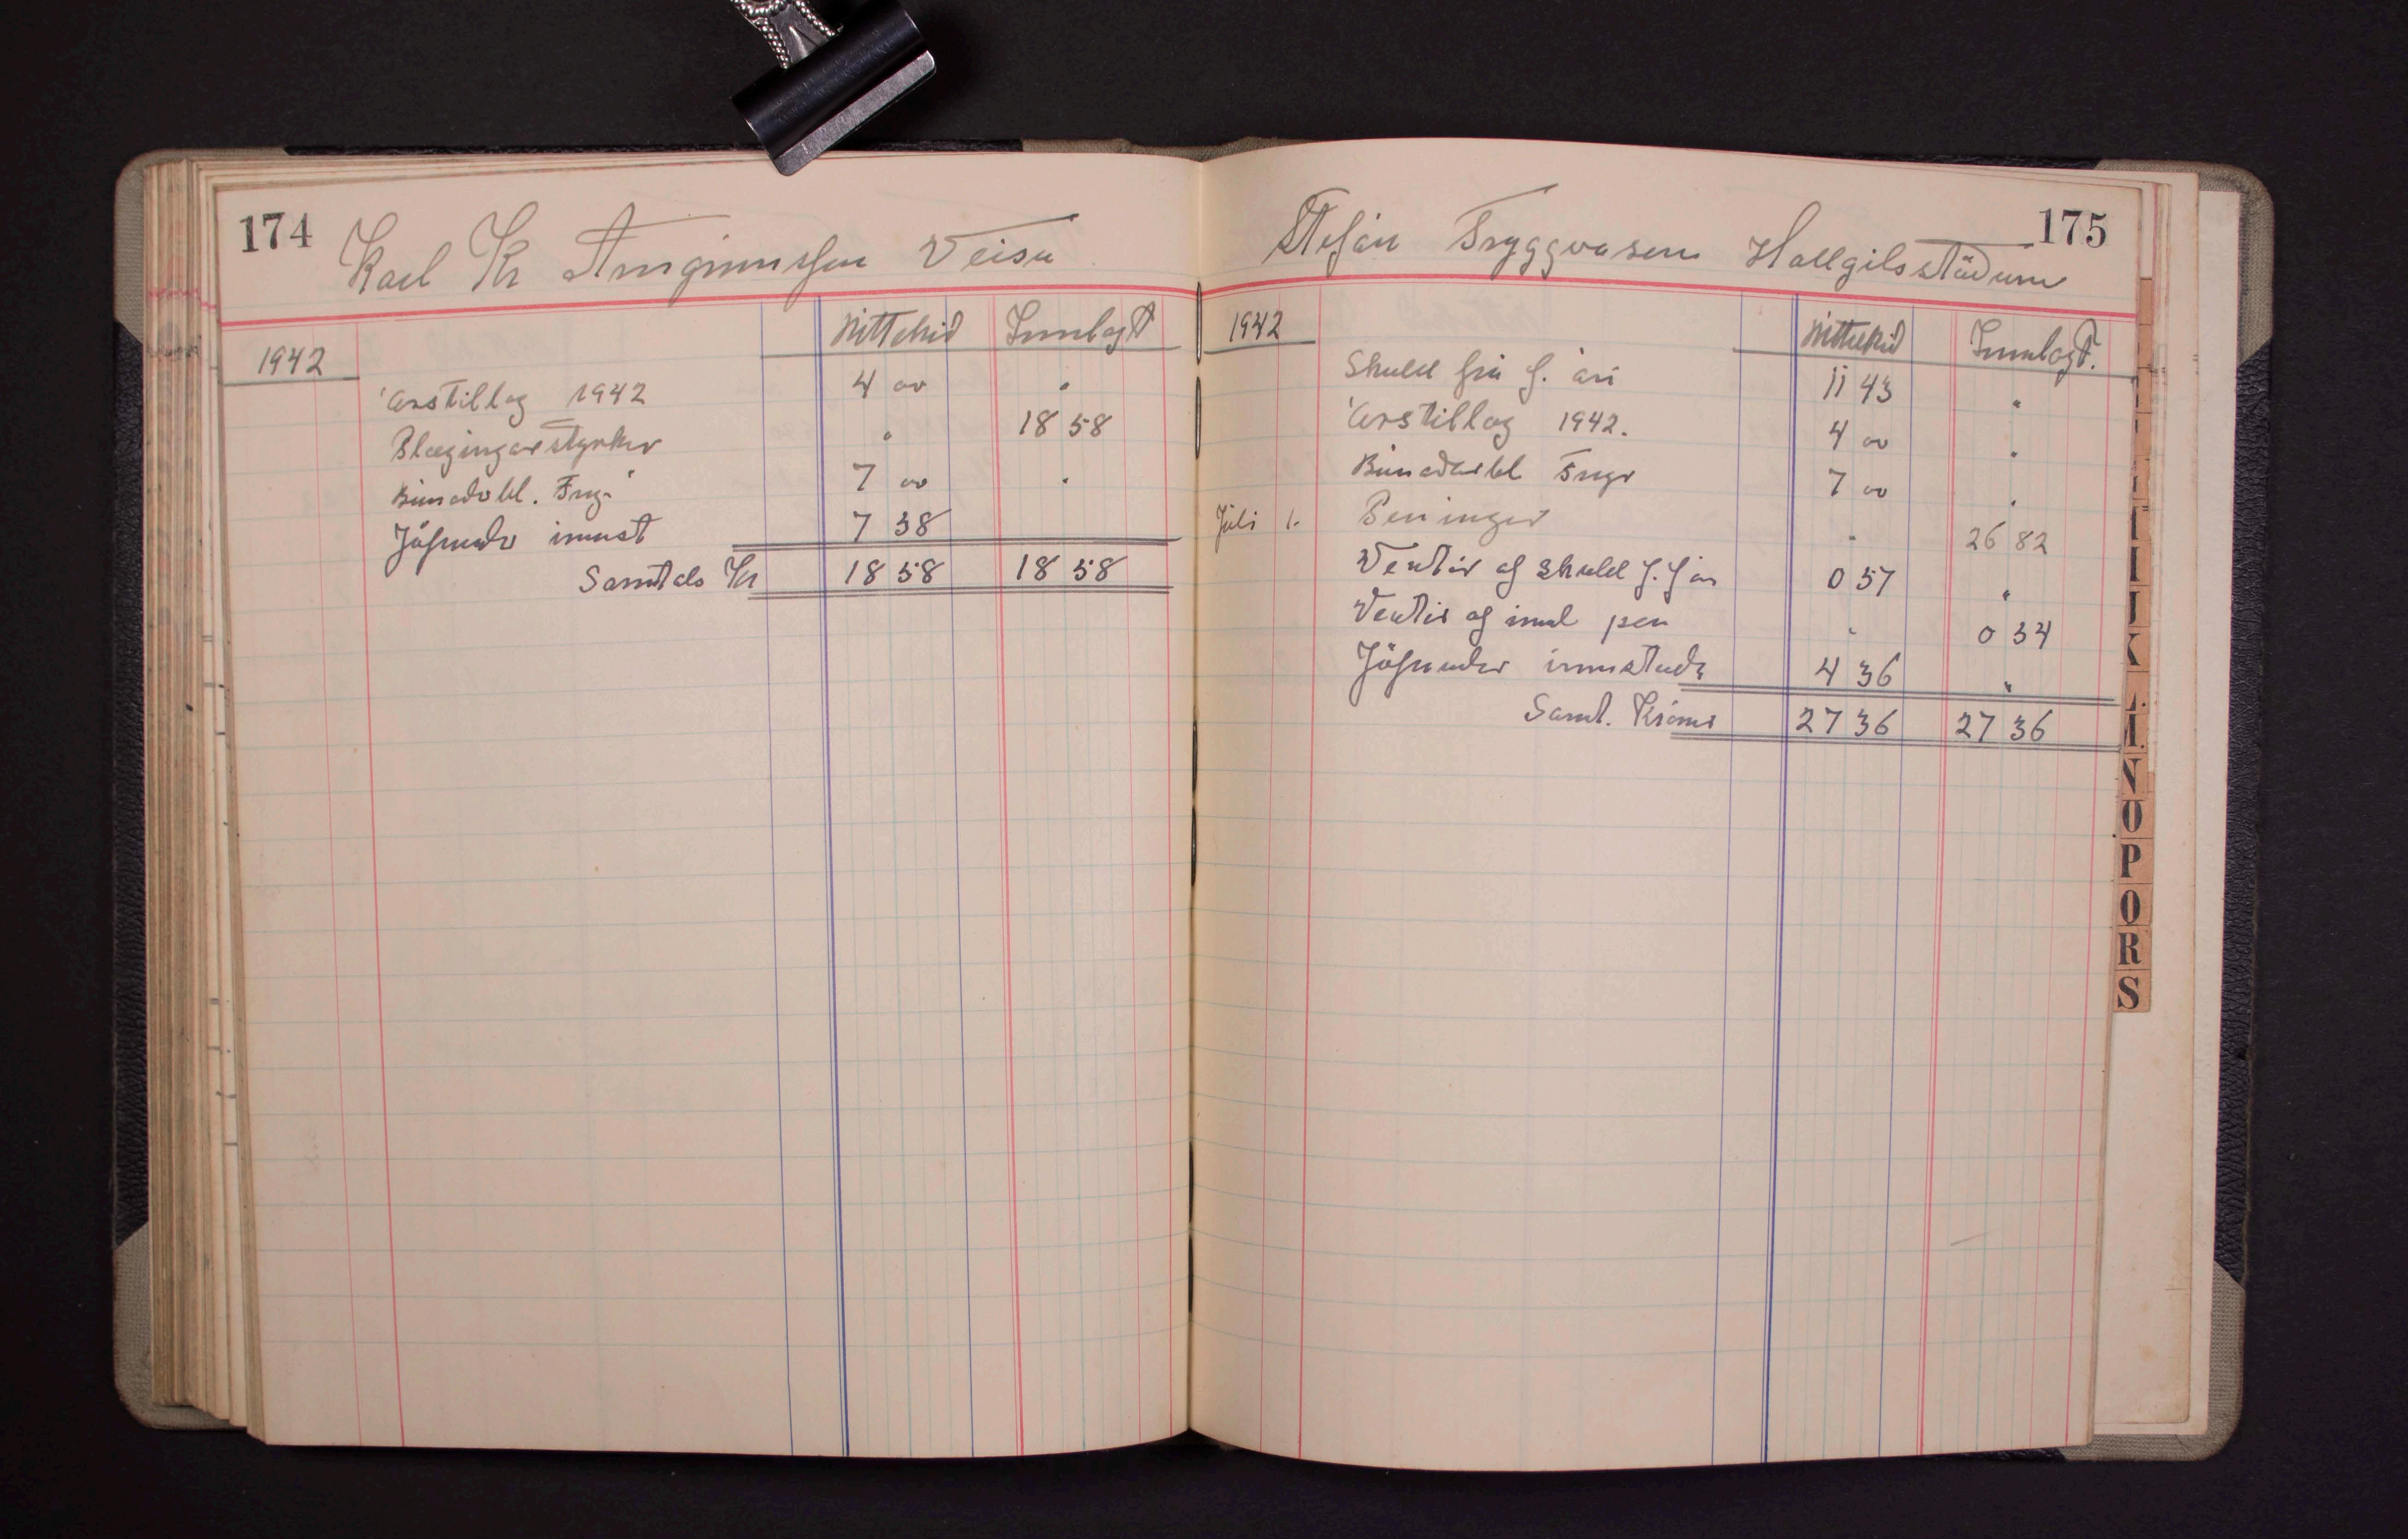 174
Karl Kr Arngrimsson Veisu
1942
Úttekið Innlagt
Árstillag 1942 4 00 "
Plægingarstyrkur " 18 58
Búnaðarbl. Freyr 7 00 "
Jöfnuður innst 7 38
Samtals Kr 18 58 18 58
175
Stefán Tryggvason Hallgilsstöðum
1942
Úttekið Innlagt.
Skuld frá f. ári 11 43 "
Árstillag 1942. 4 00 "
Búnaðarbl Freyr 7 00 "
Júli 1. Peningar " 26 82
Vextir af skuld f. f ár 0 57 "
Vextir af innl pen " 0 34
Jöfnuður innstæða 4 36 "
Samt. Krónur 27 36 27 36
K
N
O
P
Q
R
S